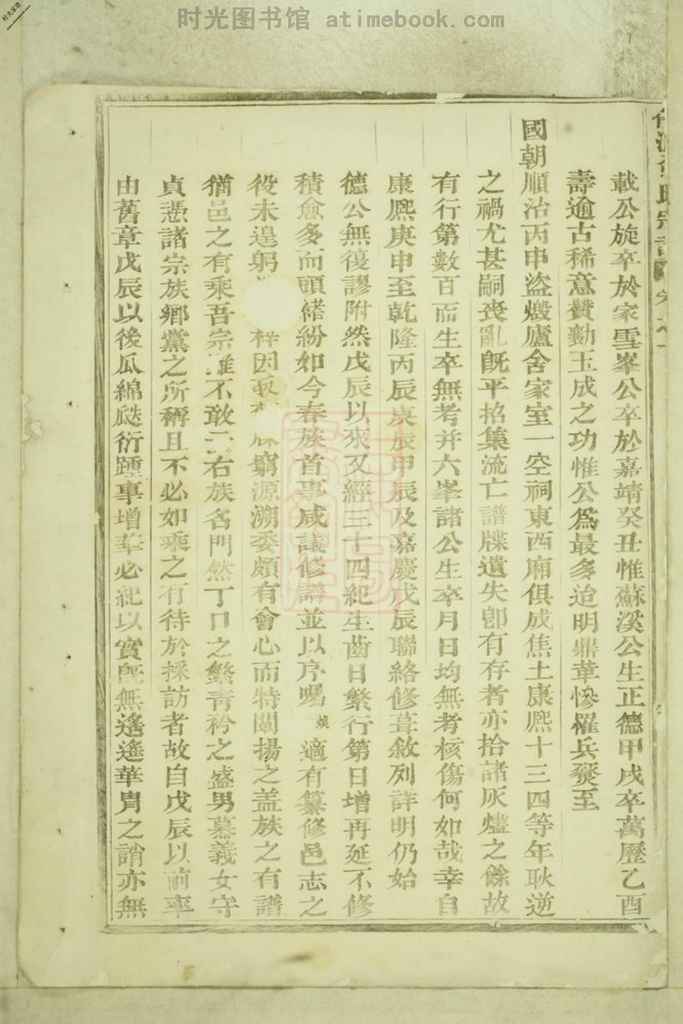 时光图书馆 atimebook.com
載公旋卒於家雪峯公卒於嘉靖癸丑惟蘇溪公生正德甲戌卒萬歷乙酉
壽逾古稀意贊勷玉成之功惟公爲最多迨明鼎革慘罹兵燹至
國朝順治丙申盜燬廬舍家室一空祠東西廂俱成焦土康熙十三四等年耿逆
之禍尤甚嗣喪亂旣平招集流亡譜牒遺失卽有存者亦拾諸灰燼之餘故
有行第數百而生卒無考并六峯諸公生卒月日均無考核傷何如哉幸自
康熙庚申至乾隆丙辰庚辰甲辰及嘉慶戊辰聯絡修葺敘列詳明仍始
德公無復謬附然戊辰以來又經三十四紀生齒日繁行第日增再延不修
積愈多而頭緒紛如今春族首事咸議修譜並以序囑 適有纂修邑志之
役未遑躬 梓因取 牒窮源溯委頗有會心而特闡揚之盖族之有譜
猶邑之有乘吾宗雖不敢云右族名門然丁口之繁靑衿之盛男慕義女守
貞憑諸宗族鄉黨之所稱且不必如乘之有待於採訪者故自戊辰以前率
由舊章戊辰以後瓜綿瓞衍踵事增華必紀以實旣無遙遙華胄之誚亦無